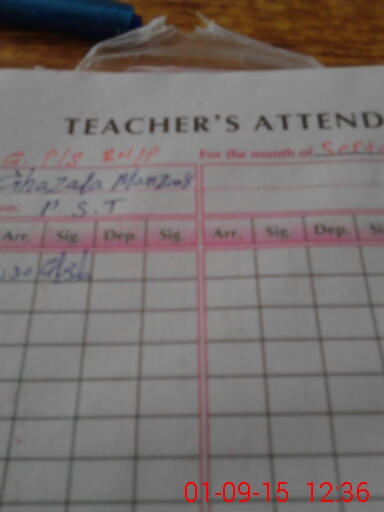 TEACHER'S ATTEND
G. P/S
For the month of Septe
Ghazala Manzoor
P.S.T
Arr. Sig. Dep. Sig. Arr. Sig. Dep. S
01-09-15 12:36